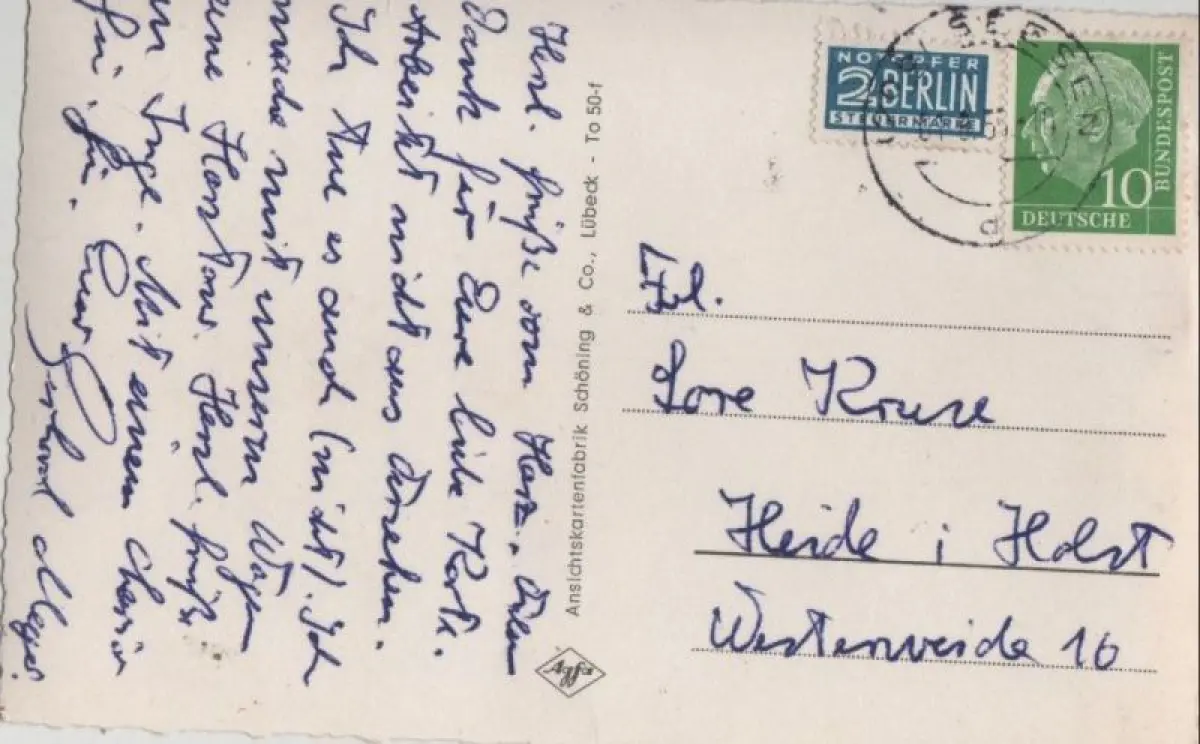 Herzl. Grüße vom Harz. Vielen
Dank für Eure liebe Karte.
Arbeitet nicht aus Versehen.
Ich tue es auch (nicht). Ich
mache mit unserem Wagen
eine Harztour. Herzl. Grüße
an Inge. Mit einem
Euer Gerhard Meyer.
Ansichtskartenfabrik Schöning & Co., Lübeck - To 50-f
Agfa
NOTOPFER
2 BERLIN
STEUERMARKE
DEUTSCHE
BUNDESPOST
10
Frl.
Lore Kruse
Heide i Holst
Westerweide 16